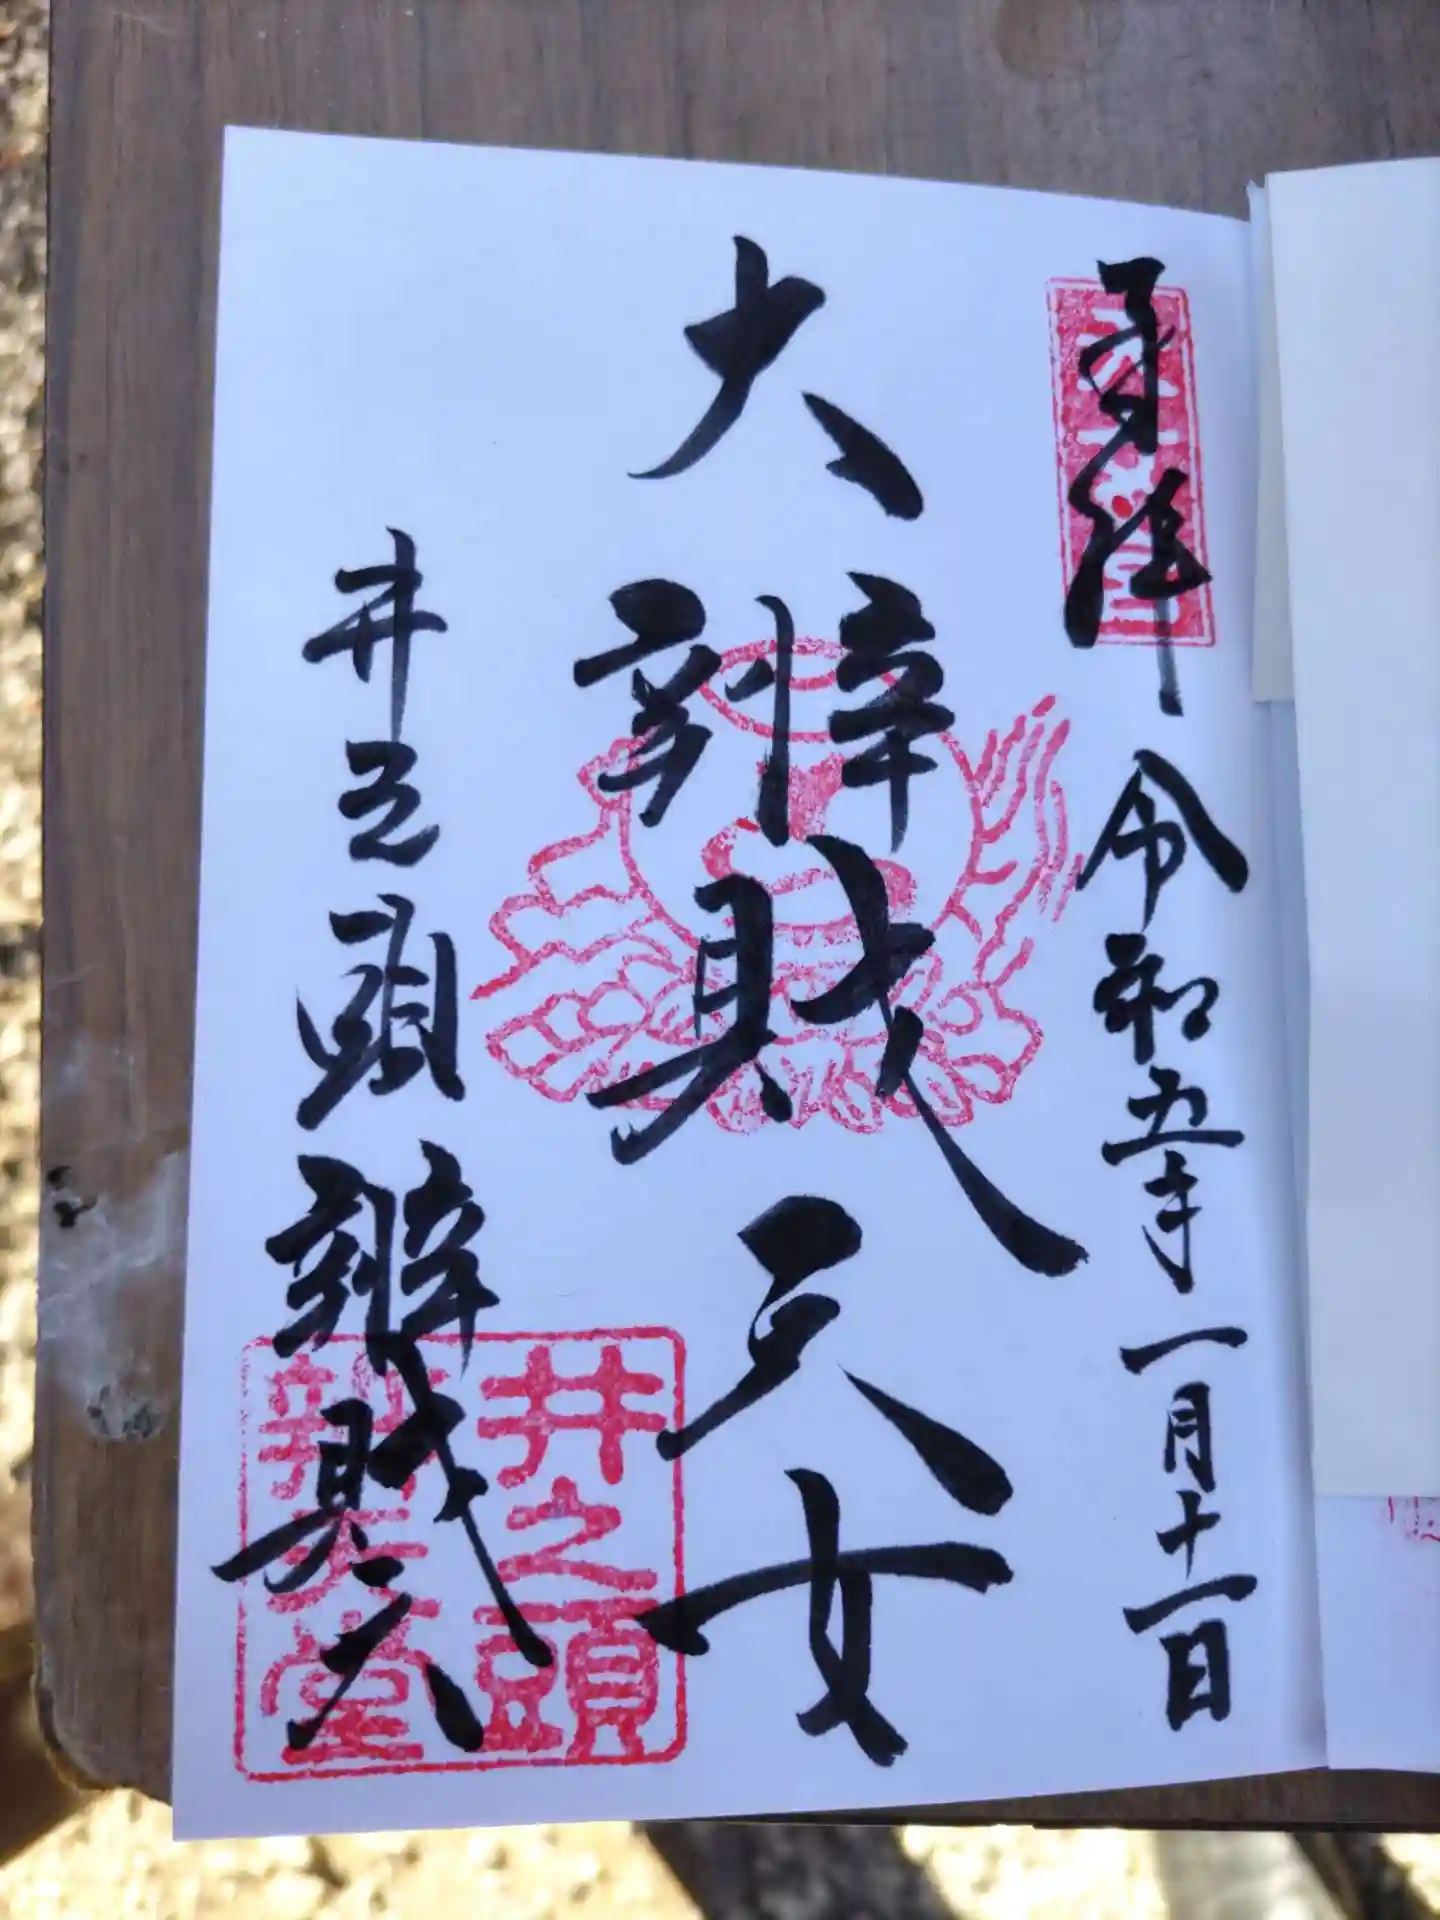 奉拝 令和五年一月十一日
大辨財天女
井之頭辨財天
井之頭
辨天堂